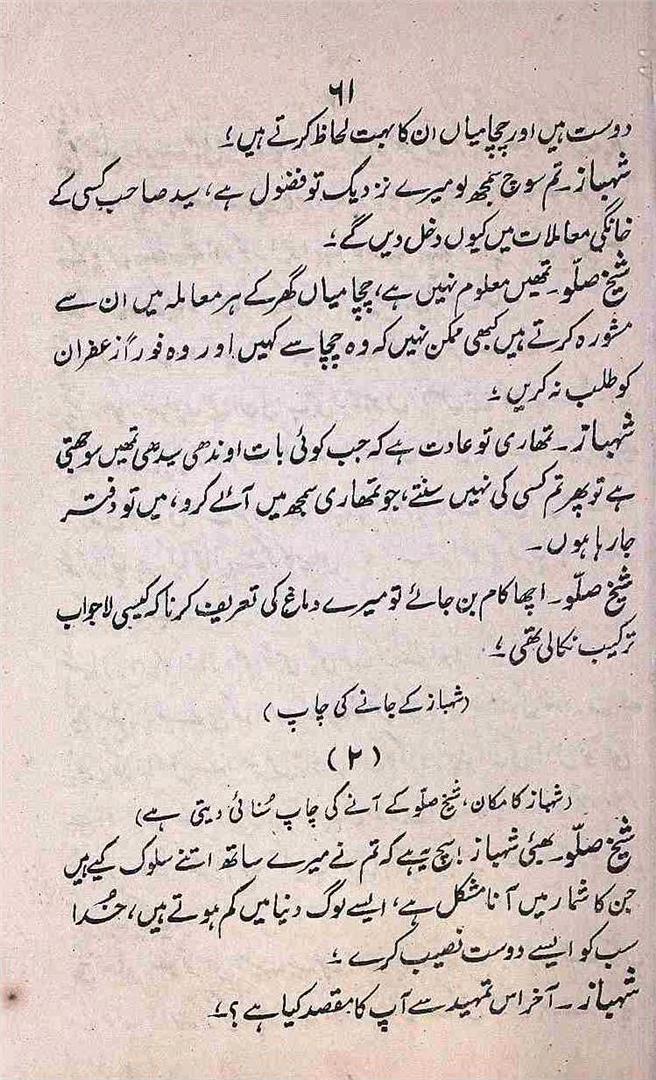 ۶۱
دوست ہیں اور چچا میاں ان کا بہت لحاظ کرتے ہیں ؛
شہباز۔ تم سوچ سمجھ لو میرے نزدیک تو فضول ہے، سید صاحب کسی کے
خانگی معاملات میں کیوں دخل دیں گے ؛
شیخ صلّو۔ تمھیں معلوم نہیں ہے، چچا میاں گھر کے ہر معاملہ میں ان سے
مشورہ کرتے ہیں کبھی ممکن نہیں کہ وہ چچا سے کہیں اور وہ فوراً زعفران
کو طلب نہ کریں ؛
شہباز۔ تمھاری تو عادت ہے کہ جب کوئی بات اوندھی سیدھی تمھیں سوجھتی
ہے تو پھر تم کسی کی نہیں سنتے، جو تمھاری سمجھ میں آئے کرو، میں تو دفتر
جا رہا ہوں۔
شیخ صلّو۔ اچھا کام بن جائے تو میرے دماغ کی تعریف کرنا کہ کیسی لاجواب
ترکیب نکالی تھی ؛
(شہباز کے جانے کی چاپ)
(۲)
(شہباز کا مکان، شیخ صلّو کے آنے کی چاپ سُنائی دیتی ہے)
شیخ صلّو۔ بھئی شہباز! سچ یہ ہے کہ تم نے میرے ساتھ اتنے سلوک کیے ہیں
جن کا شمار میں آنا مشکل ہے، ایسے لوگ دنیا میں کم ہوتے ہیں، خُدا
سب کو ایسے دوست نصیب کرے ؛
شہباز۔ آخر اس تمہید سے آپ کا مقصد کیا ہے؟ ؛